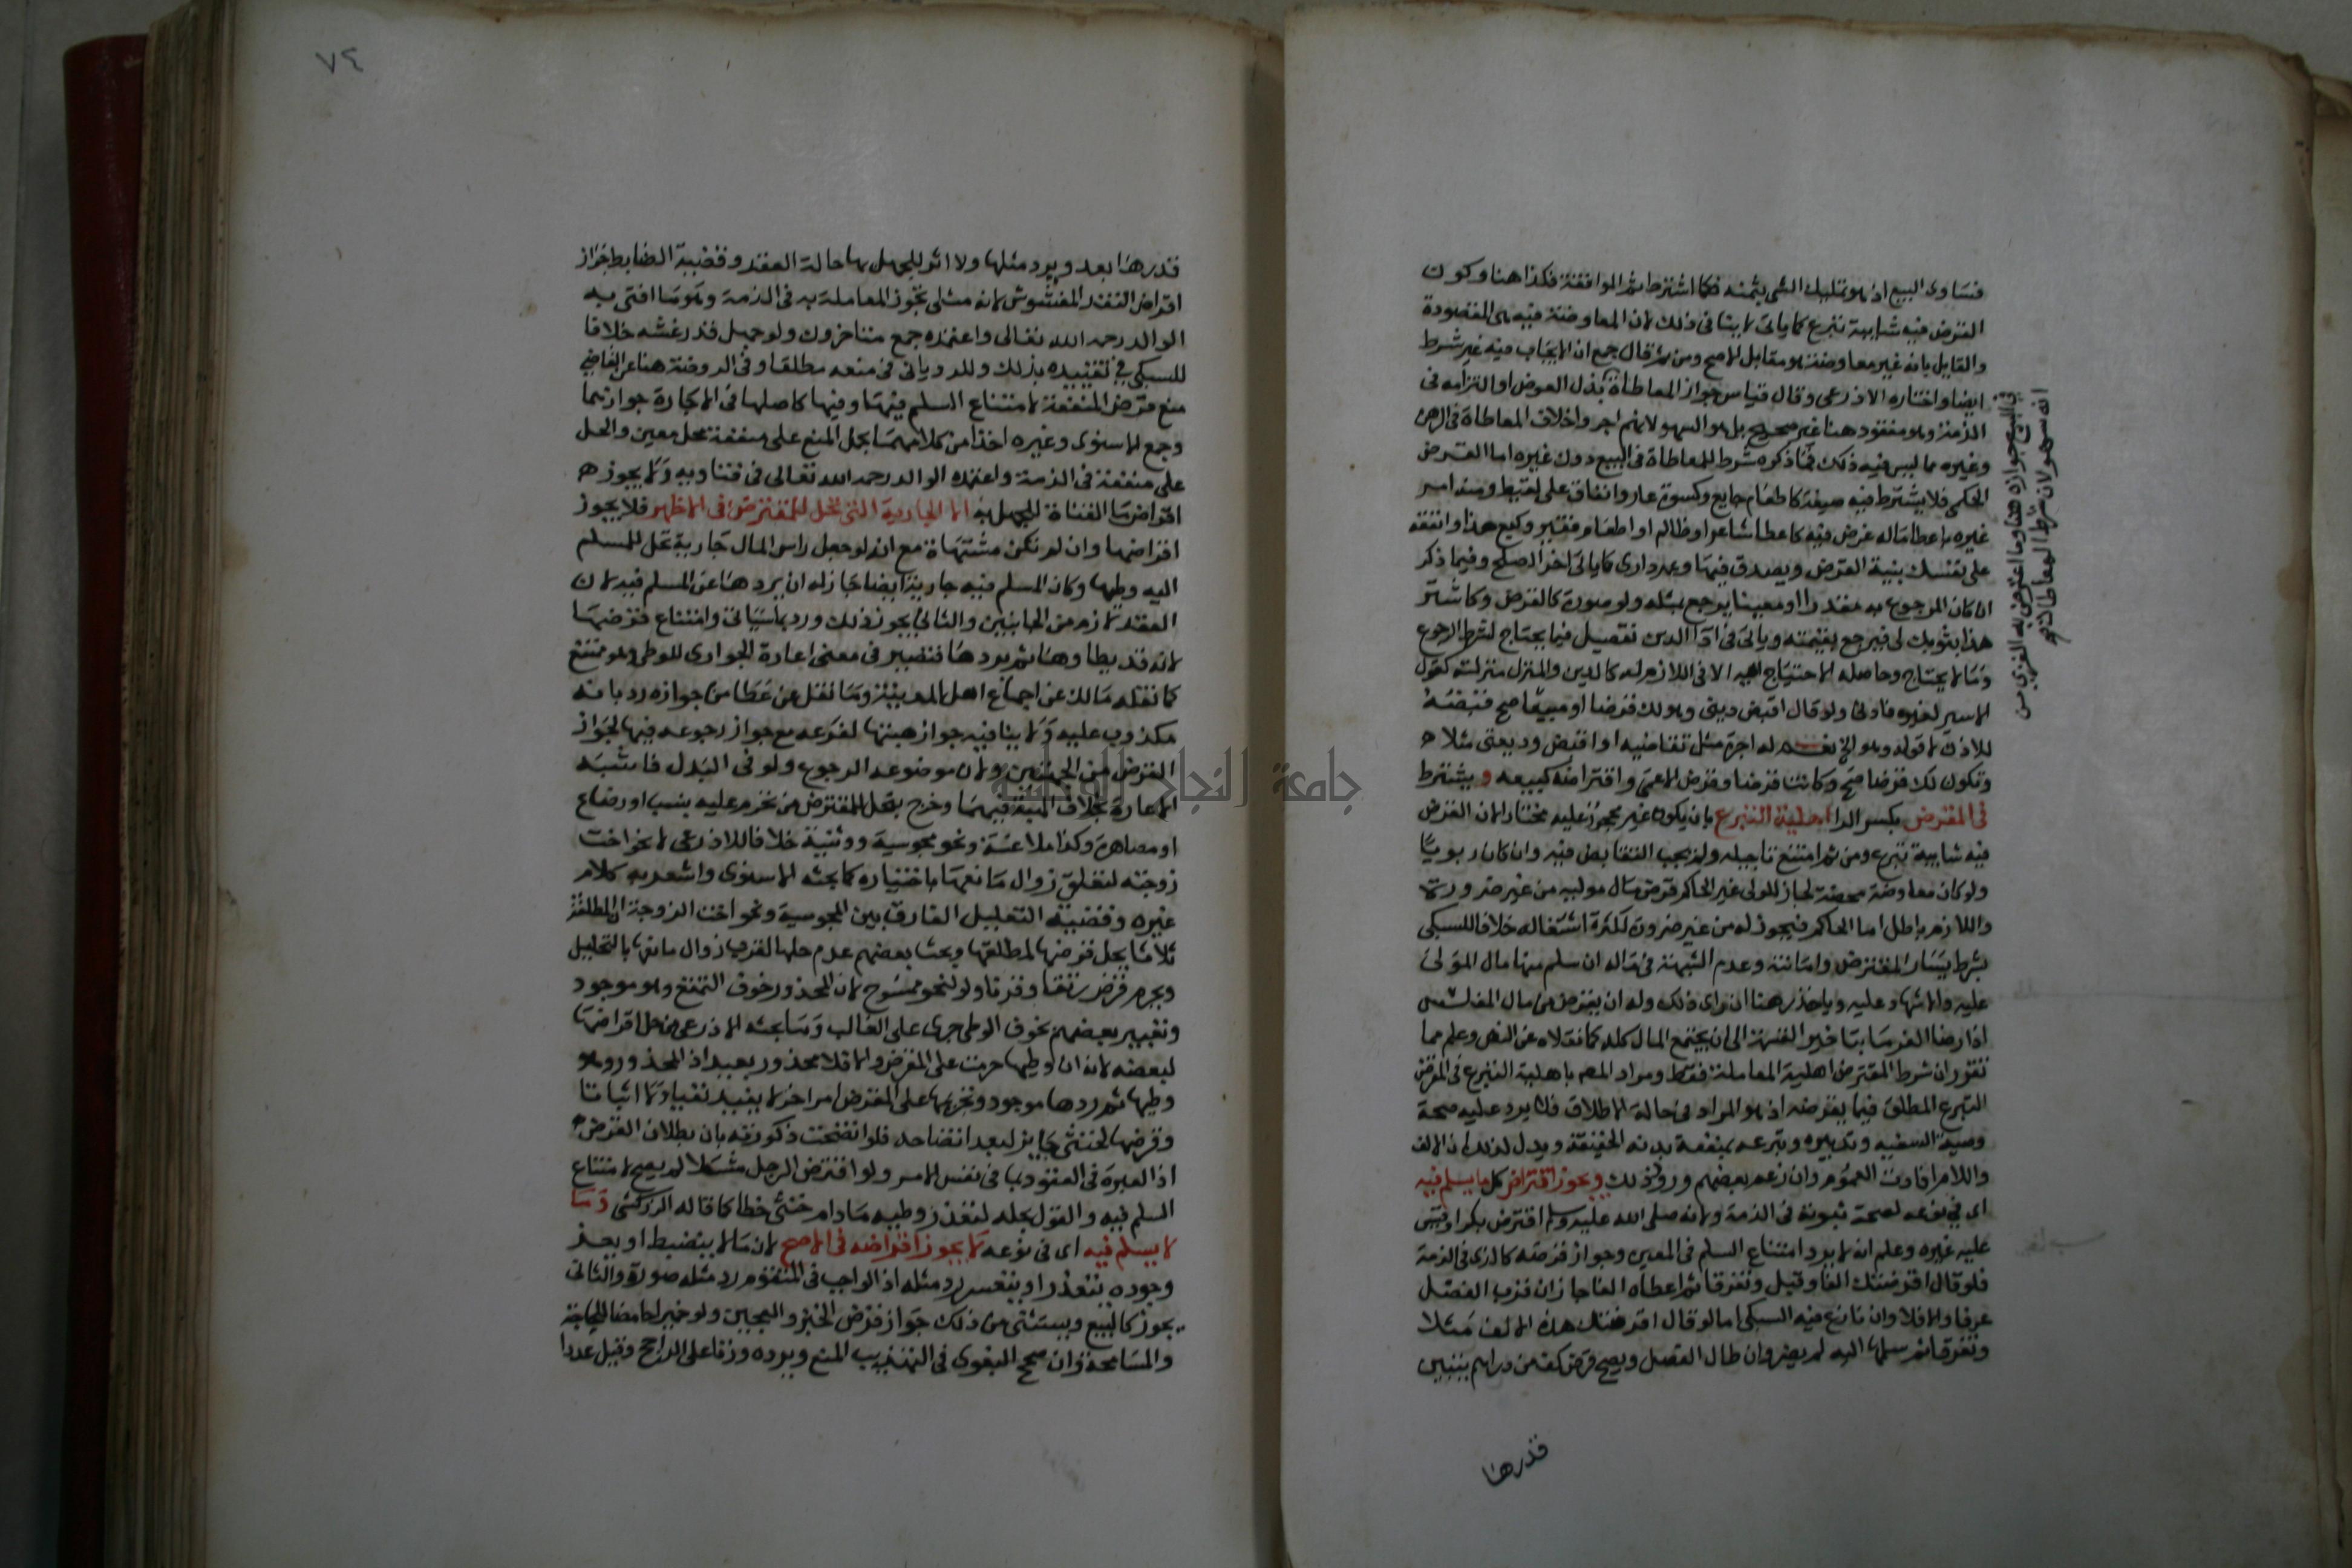 فساوى البيع اذ هو تمليك الشي بثمنه فكما اشترط ثم الموافقة فكذا هنا وكون
القرض فيه شايبة تبرع كما ياتي لا ينافي ذلك لان المعاوضة فيه هي المقصودة
والقايل بانه غير معاوضة هو مقابل الاصح ومن ثم قال جمع ان الايجاب فيه غير شرط
ايضا واختاره الاذرعي وقال قياس جواز المعاطاة في البيع جوازه هنا وما اعترض به الغزي من
انه سهو لان شرط المعاطاة بذل العوض او التزامه في
الذمة وهو مفقود هنا غير صحيح بل هو السهو لانهم اجروا خلاف المعاطاة في الرهن
وغيره مما ليس فيه ذلك فما ذكره شرط للمعاطاة في البيع دون غيره اما القرض
الحكمي فلا يشترط فيه صيغة كاطعام جايع وكسوة عار وانفاق على لقيط ومنه امر
غيره باعطا ماله غرض فيه كاعطا شاعر او ظالم او اطعام فقير وكبع هذا وانفقه
على نفسك بنية القرض ويصدق فيها وعمر داري كما ياتي اخر الصلح وفيما ذكر
ان كان المرجوع به مقدرا او معينا يرجع بمثله ولو صورة كالقرض وكاشتر
هذا بثوبك لي فيرجع بقيمته وياتي في ادا الدين تفصيل فيما يحتاج لشرط الرجوع
وما لا يحتاج وحاصله الاحتياج اليه الا في اللازم له كالدين والمنزل منزلته كقول
الاسير لغيره فادني ولو قال اقبض ديني وهو لك قرضا او مبيعا صح قبضه
للاذن لا قوله وهو الخ نعم له اجرة مثل تقاضيه او اقبض وديعتي مثلا
وتكون لك قرضا صح وكانت قرضا وقرض الاعمى واقتراضه كبيعه ويشترط
في المقرض بكسر الرا اهلية التبرع بان يكون غير محجور عليه مختارا لان القرض
فيه شايبة تبرع ومن ثم امتنع تاجيله ولم يجب التقابض فيه وان كان ربويا
ولو كان معاوضة محضة لجاز للولي غير الحاكم قرض مال موليه من غير ضرورة
واللازم باطل اما الحاكم فيجوز له من غير ضرورة لكثرة اشتغاله خلافا للسبكي
بشرط يسار المقترض وامانته وعدم الشبهة في ماله ان سلم منها مال المولى
عليه والاشهاد عليه وياخذ رهنا ان راى ذلك وله ان يقرض من مال المفلس
اذا رضا الغرما بتاخير القسمة الى ان يجتمع المال كله كما نقلاه عن النص وعلم مما
تقرر ان شرط المقترض اهلية المعاملة فقط ومراد المص باهلية التبرع في المقرض
التبرع المطلق فيما يقرضه اذ هو المراد في حالة الاطلاق فلا يرد عليه صحة
وصية السفيه وتدبيره وتبرعه بمنفعة بدنه الخفيفة ويدل لذلك ان الالف
واللام افادت العموم وان زعم بعضهم ورود ذلك ويجوز اقتراض كل ما يسلم فيه
اي في نوعه لصحة ثبوته في الذمة ولانه صلى الله عليه وسلم اقترض بكرا وقيس
عليه غيره وعلم انه لا يرد امتناع السلم في المعين وجواز قرضه كالذي في الذمة
فلو قال اقرضتك الفا وقبل وتفرقا ثم اعطاه الفا جاز ان قرب الفصل
عرفا والا فلا وان نازع فيه السبكي اما لو قال اقرضتك هذه الالف مثلا
وتفرقا ثم سلمها اليه لم يضر وان طال الفصل ويصح قرض كف من دراهم يتبين
قدرها
٧٤
قدرها بعد ويرد مثلها ولا اثر للجهل بها حالة العقد وقضية الضابط جواز
اقراض النقد المغشوش لانه مثلي تجوز المعاملة به في الذمة وهو ما افتى به
الوالد رحمه الله تعالى واعتمده جمع متاخرون ولو جهل قدر غشه خلافا
للسبكي في تقييده بذلك وللروياني في منعه مطلقا وفي الروضة هنا عن القاضي
منع قرض المنفعة لامتناع السلم فيها وفيها كاصلها في الاجارة جوازهما
وجمع الاسنوي وغيره اخذا من كلامهما بحمل المنع على منفعة محل معين والحل
على منفعة في الذمة واعتمده الوالد رحمه الله تعالى في فتاويه ولا يجوز
اقراض ما القناة للجهل به الا الجارية التي تحل للمقترض في الاظهر فلا يجوز
اقراضها وان لم تكن مشتهاة مع انه لو جعل راس المال جارية تحل للمسلم
اليه وطيها وكان المسلم فيه جارية ايضا جاز له ان يردها عن المسلم فيه لان
العقد لازم من الجانبين والثاني يجوز ذلك ورد بما سياتي وامتناع قرضها
لانه قد يطاوها ثم يردها فتصير في معنى اعارة الجواري للوطي وهو ممتنع
كما نقله مالك عن اجماع اهل المدينة وما نقل عن عطا من جوازه رد بانه
مكذوب عليه ولا ينافيه جواز هبتها لفرعه مع جواز رجوعه فيها لجواز
القرض من الجهتين ولان موضوعه الرجوع ولو في البدل فاشبه
الاعارة بخلاف الهبة فيهما وخرج بتحل للمقترض من تحرم عليه بنسب او رضاع
او مصاهرة وكذا ملاعنة ونحو مجوسية ووثنية خلافا للاذرعي لا نحو اخت
زوجته لتعلق زوال مانعها باختياره كما بحثه الاسنوي واشعر به كلام
غيره وقضيته التعليل الفارق بين المجوسية ونحو اخت الزوجة ان المطلقة
ثلاثا يحل قرضها لمطلقها وبحث بعضهم عدم حلها لقرب زوال مانعها بالتحليل
ويحرم قرض رتقا وقرنا ولو لنحو ممسوح لان المحذور خوف التمتع وهو موجود
وتعبير بعضهم بخوف الوطي جرى على الغالب وما بحثه الاذرعي من حل اقراضها
لبعضه لانه ان وطيها حرمت على المقرض والا فلا محذور بعيد اذ المحذور وهو
وطيها ثم ردها موجود وتحريمها على المقرض امر اخر لا يفيد نفيا ولا اثباتا
وقرضها لخنثى جايز لبعد اتضاحه فلو اتضحت ذكورته بان بطلان القرض
اذ العبرة في العقود بما في نفس الامر ولو اقترض الرجل مشكلا لم يصح لامتناع
السلم فيه والقول بحله لتعذر وطيه ما دام خنثى خطا كما قاله الزركشي وما
لا يسلم فيه اي في نوعه لا يجوز اقراضه في الاصح لان ما لا ينضبط او يعز
وجوده يتعذر او يتعسر رد مثله اذ الواجب في المتقوم رد مثله صورة والثاني
يجوز كالبيع ويستثنى من ذلك جواز قرض الخبز والعجين ولو خمير حامض للحاجة
والمسامحة وان صحح البغوي في التهذيب المنع ويرده وزنا على الراجح وقيل عددا
جامعة النجاح الوطنية